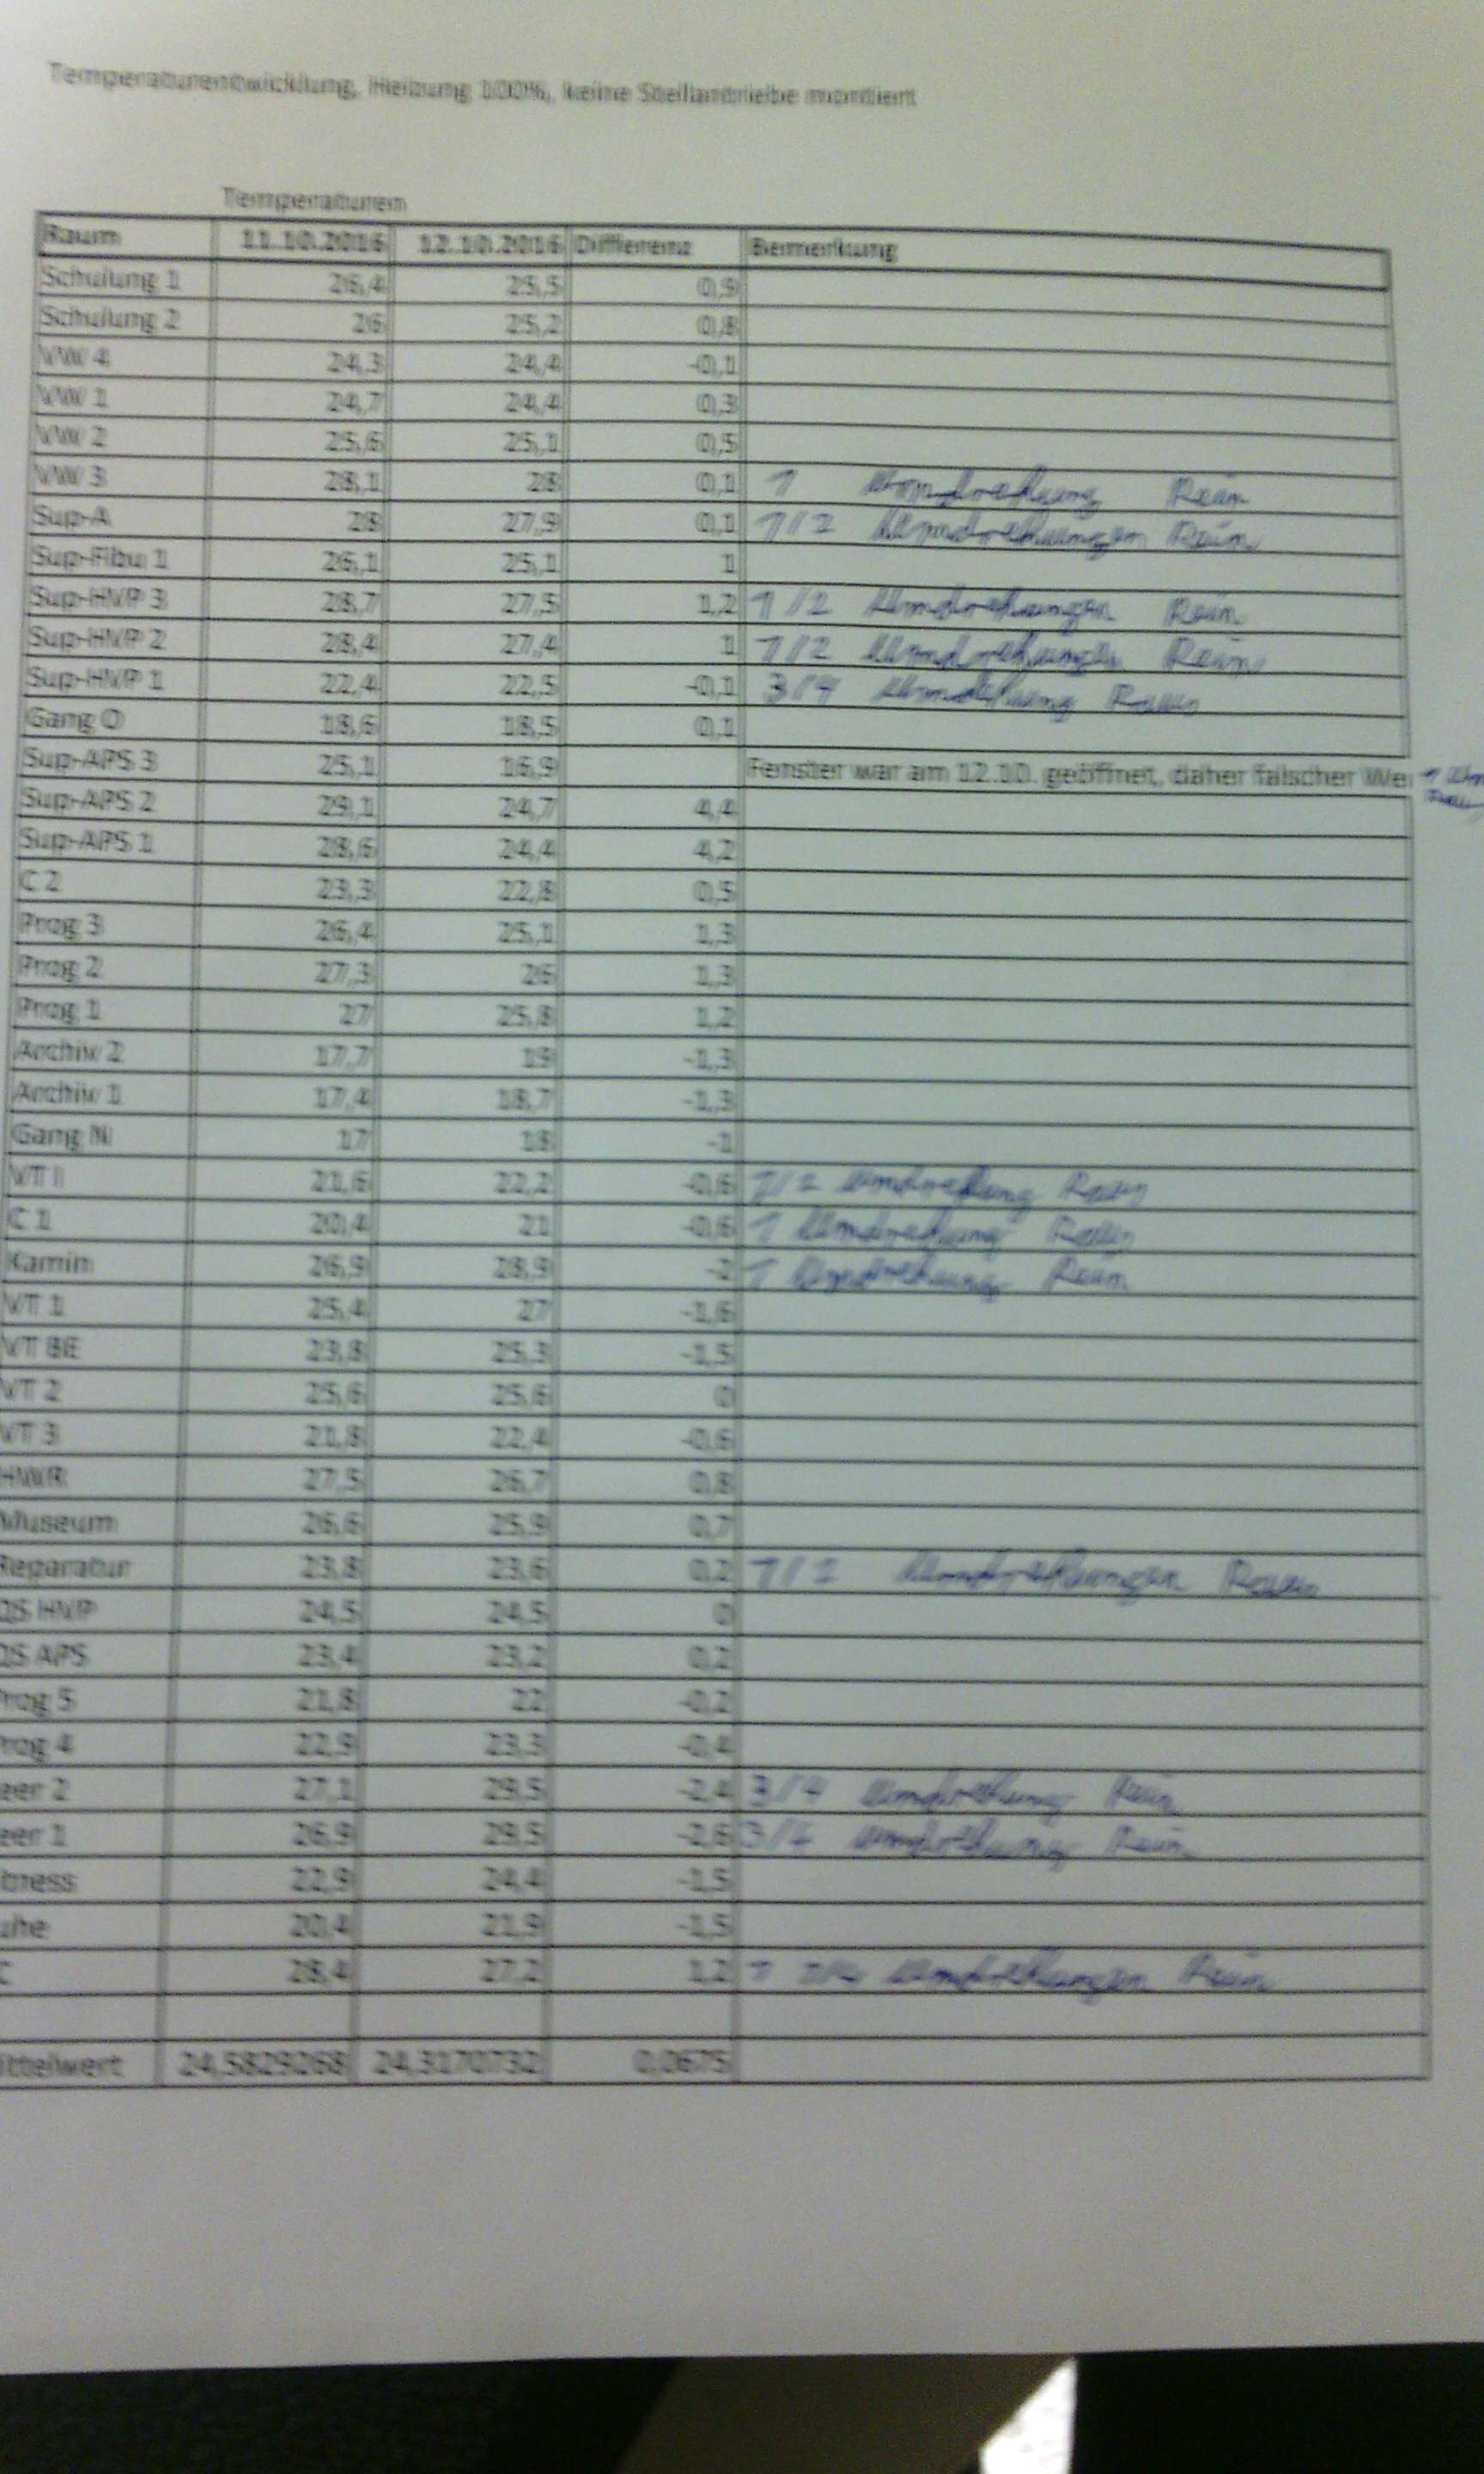 Temperaturentwicklung, Heizung 100%, keine Stellantriebe montiert
Temperaturen
Raum 11.10.2016 12.10.2016 Differenz Bemerkung
Schulung 1 26,4 25,5 0,9
Schulung 2 26 25,2 0,8
VW 4 24,3 24,4 -0,1
VW 1 24,7 24,4 0,3
VW 2 25,6 25,1 0,5
VW 3 28,1 28 0,1 1 Umdrehung Rein
Sup-A 28 27,9 0,1 1/2 Umdrehungen Rein
Sup-Fibu 1 26,1 25,1 1
Sup-HVP 3 28,7 27,5 1,2 1/2 Umdrehungen Rein
Sup-HVP 2 28,4 27,4 1 1/2 Umdrehungen Rein
Sup-HVP 1 22,4 22,5 -0,1 3/4 Umdrehung Raus
Gang O 18,6 18,5 0,1
Sup-APS 3 25,1 16,9 Fenster war am 12.10. geöffnet, daher falscher We
Sup-APS 2 29,1 24,7 4,4
Sup-APS 1 28,6 24,4 4,2
C 2 23,3 22,8 0,5
Prog 3 26,4 25,1 1,3
Prog 2 27,3 26 1,3
Prog 1 27 25,8 1,2
Archiv 2 17,7 19 -1,3
Archiv 1 17,4 18,7 -1,3
Gang N 17 18 -1
VT I 21,6 22,2 -0,6 1/2 Umdrehung Raus
C 1 20,4 21 -0,6 1 Umdrehung Raus
Kamin 26,9 28,9 -2 1 Umdrehung Rein
VT 1 25,4 27 -1,6
VT BE 23,8 25,3 -1,5
VT 2 25,6 25,6 0
VT 3 21,8 22,4 -0,6
HWR 27,5 26,7 0,8
Museum 26,6 25,9 0,7
Reparatur 23,8 23,6 0,2 1/2 Umdrehungen Raus
QS HVP 24,5 24,5 0
QS APS 23,4 23,2 0,2
rog 5 21,8 22 -0,2
rog 4 22,9 23,3 -0,4
eer 2 27,1 29,5 -2,4 3/4 Umdrehung Rein
eer 1 26,9 29,5 -2,6 3/4 Umdrehung Rein
tness 22,9 24,4 -1,5
uhe 20,4 21,9 -1,5
C 28,4 27,2 1,2 1 1/4 Umdrehungen Rein
ittelwert 24,5829268 24,3170732 0,0675